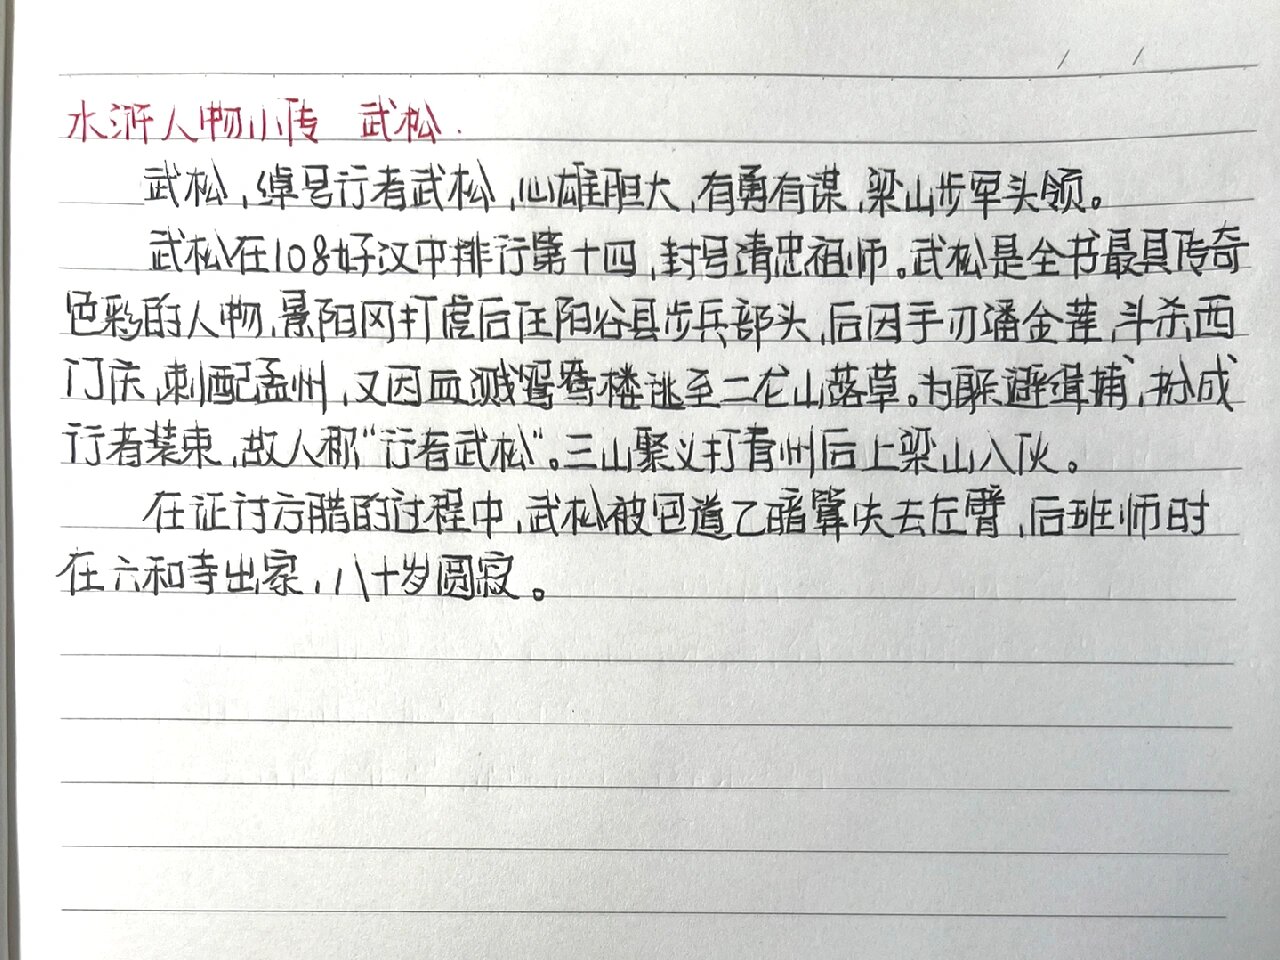 水浒人物小传 武松.
武松,绰号行者武松,心雄胆大,有勇有谋,梁山步军头领。
武松在108好汉中排行第十四,封号清忠祖师。武松是全书最具传奇
色彩的人物,景阳冈打虎后任阳谷县步兵部头,后因手刃潘金莲,斗杀西
门庆,刺配孟州,又因血溅鸳鸯楼逃至二龙山落草。为躲避缉捕,扮成
行者装束,故人称“行者武松”。三山聚义打青州后上梁山入伙。
在征讨方腊的过程中,武松被包道乙暗算失去左臂,后班师时
在六和寺出家,八十岁圆寂。